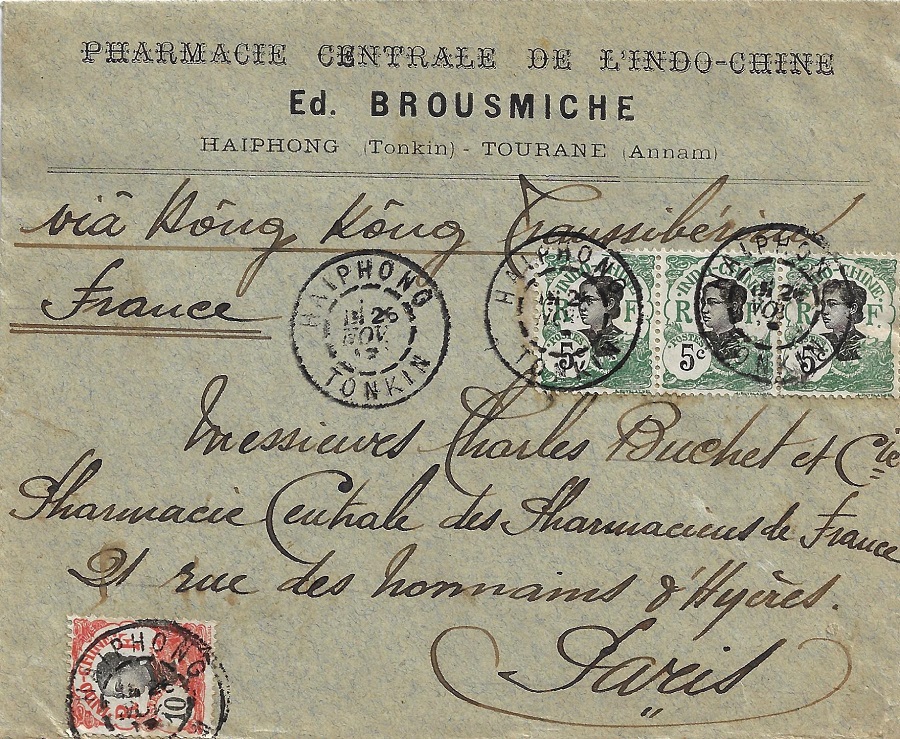 PHARMACIE CENTRALE DE L'INDO-CHINE
Ed. BROUSMICHE
HAIPHONG (Tonkin) - TOURANE (Annam)
viâ Hông Kông Transsibérien
France
HAIPHONG
26
NOV
TONKIN
HAIPHONG
26
TONKIN
HAIPHONG
26
NOV
TONKIN
INDO-CHINE
R F
POSTES
5c
INDO-CHINE
R F
POSTES
5c
INDO-CHINE
R F
5c
Messieurs Charles Buchet et Cie
Pharmacie Centrale des Pharmaciens de France
21 rue des nonnains d'Hyères.
Paris
HAIPHONG
INDO-CHINE
10